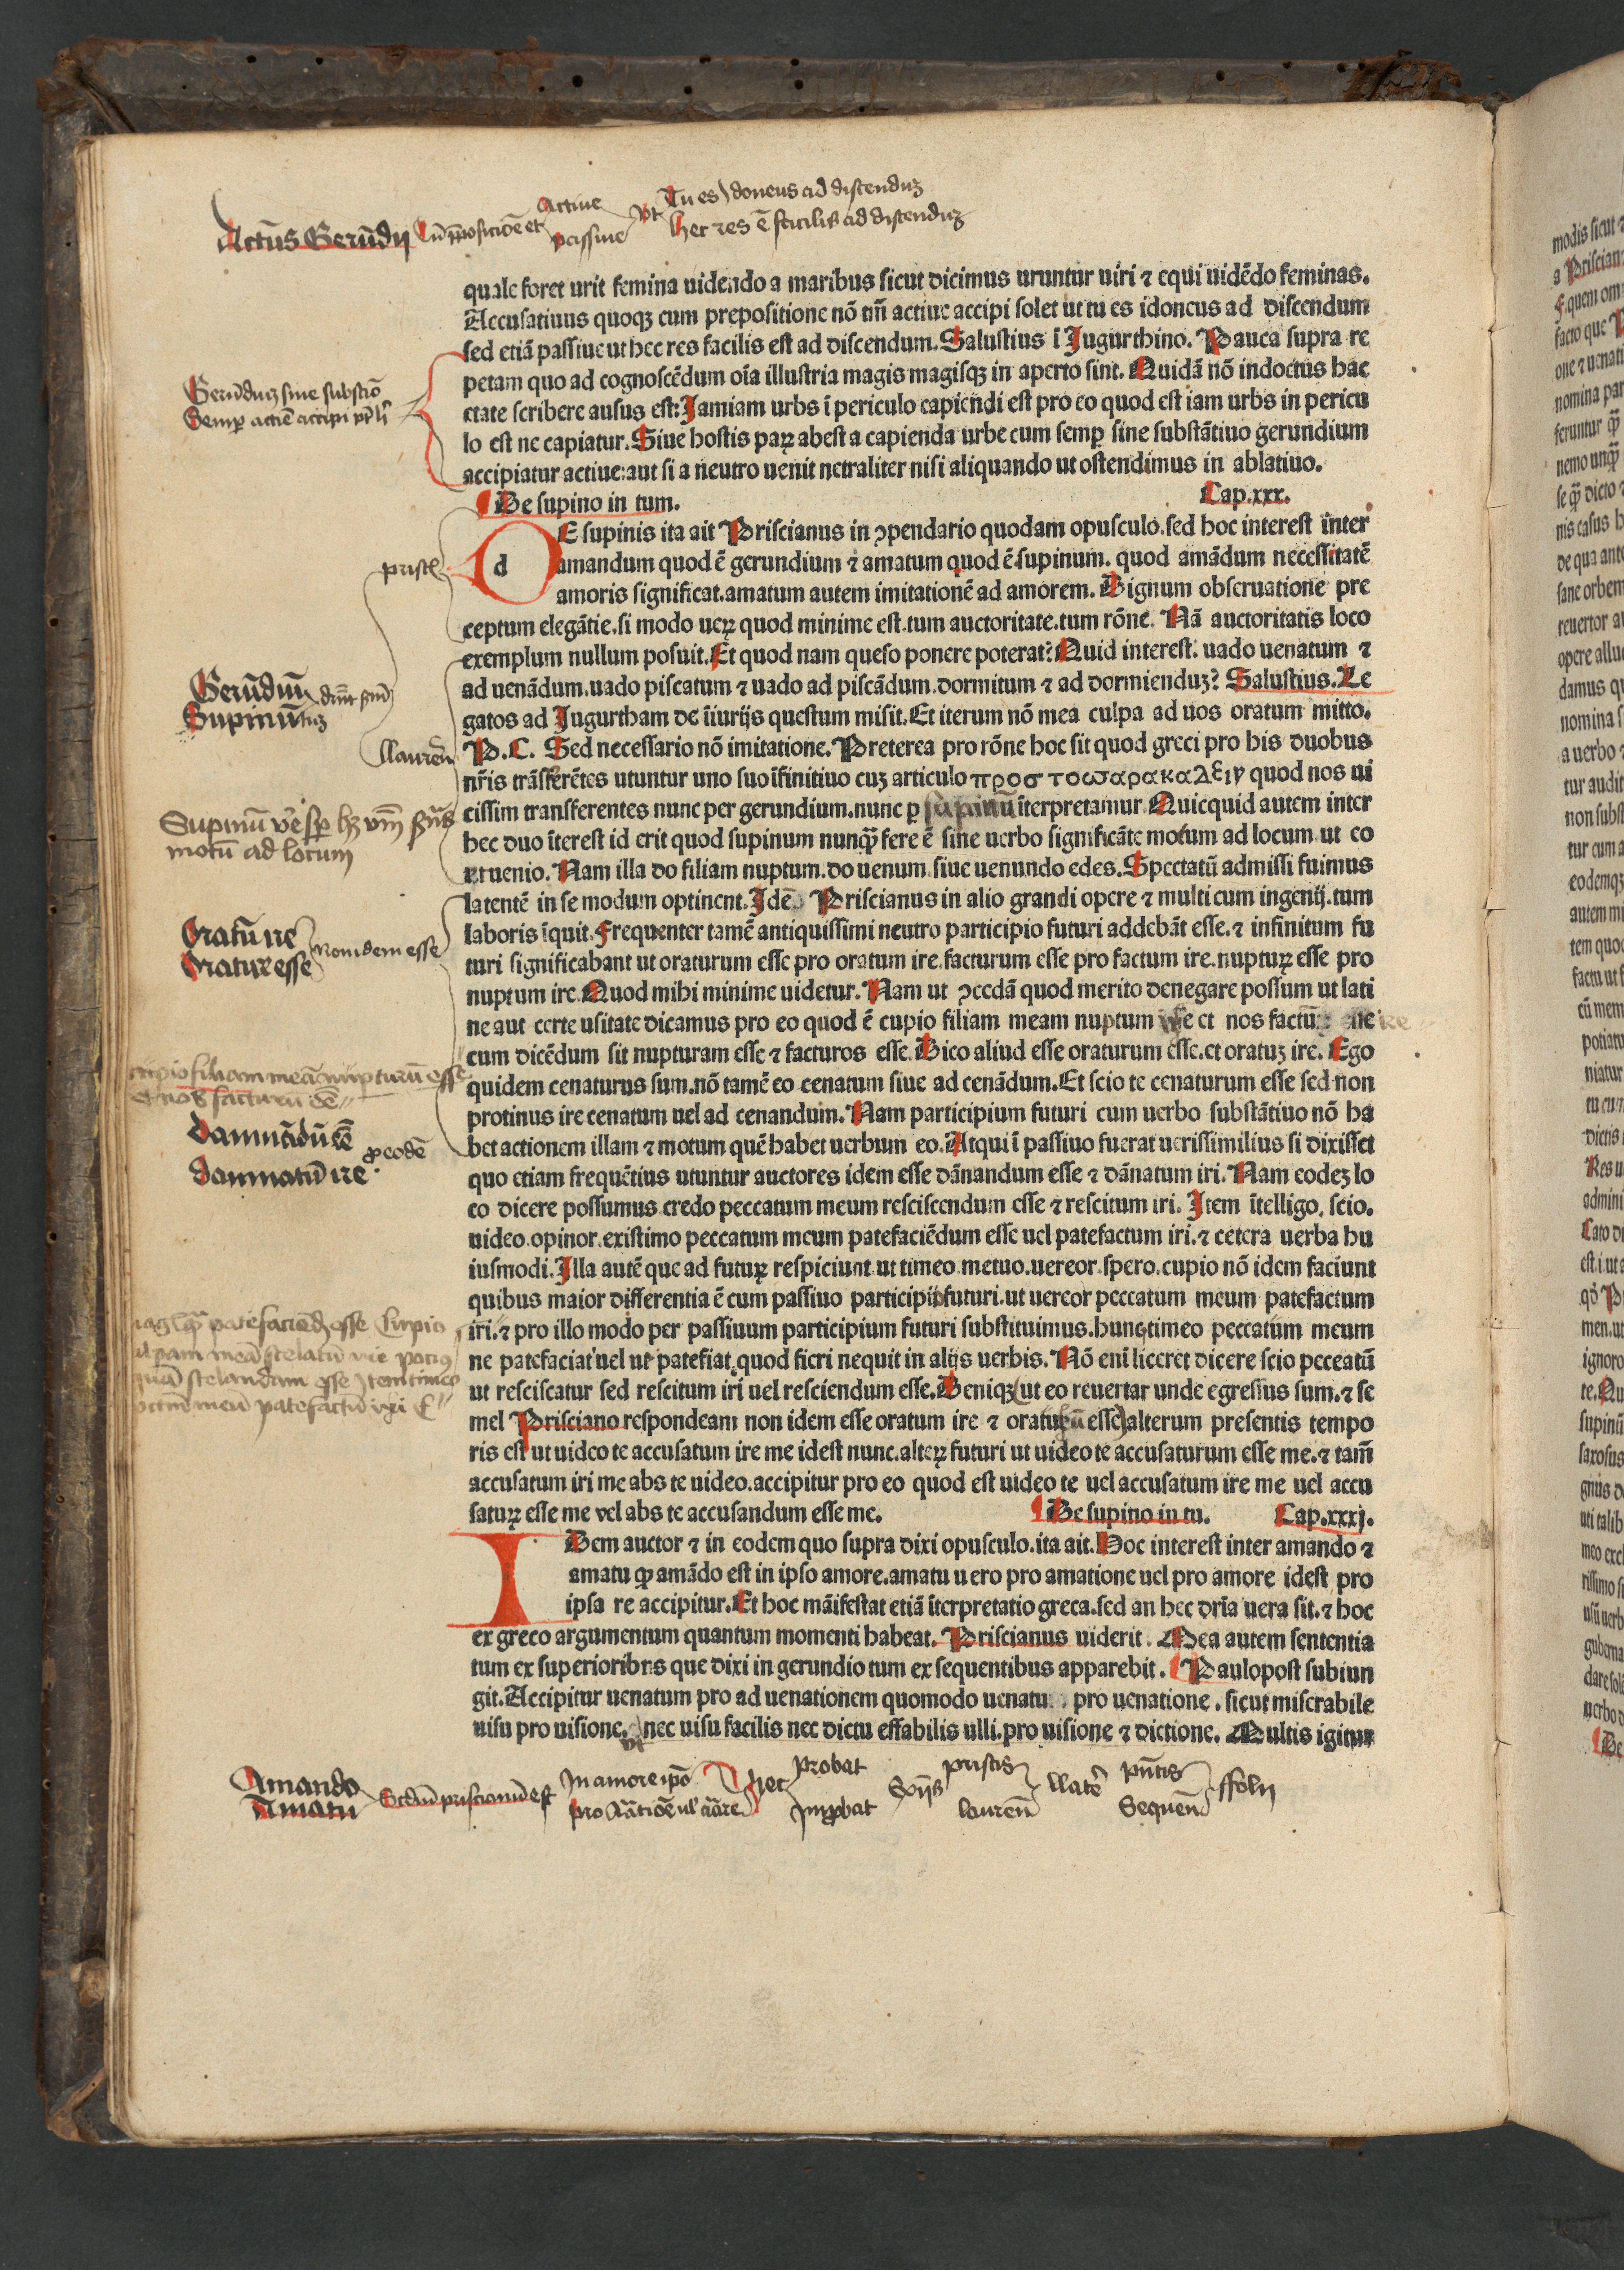 Actus Gerūdij Cū p̄positiōe et Actiue passiue vt Tu es Idoneus ad discenduʒ
hec res ē facilis ad discenduʒ
quale foret urit femina uidendo a maribus sicut dicimus uruntur uiri ⁊ equi uidēdo feminas.
Accusatiuus quoqʒ cum prepositione nō tm̄ actiue accipi solet ut tu es idoneus ad discendum
sed etiā passiue ut hec res facilis est ad discendum. Salustius ī Jugurthino. Pauca supra re
petam quo ad cognoscēdum oīa illustria magis magisqʒ in aperto sint. Quidā nō indoctus hac
etate scribere ausus est: Jamiam urbs ī periculo capiendi est pro eo quod est iam urbs in pericu
lo est ne capiatur. Siue hostis paꝝ abest a capienda urbe cum semꝑ sine substātiuo gerundium
accipiatur actiue: aut si a neutro uenit netraliter nisi aliquando ut ostendimus in ablatiuo.
Gerūduʒ sine substātiō
Semꝑ actiē accipi
¶ De supino in tum. Cap.xxx.
dE supinis ita ait Priscianus in ꝯpendario quodam opusculo. sed hoc interest inter
amandum quod ē gerundium ⁊ amatum quod ē supinum. quod amādum necessitatē
amoris significat. amatum autem imitationē ad amorem. Dignum obseruatione pre
ceptum elegātie. si modo ueꝝ quod minime est. tum auctoritate. tum rōne. Nā auctoritatis loco
exemplum nullum posuit. Et quod nam queso ponere poterat? Quid interest. uado uenatum ⁊
ad uenādum. uado piscatum ⁊ uado ad piscādum. dormitum ⁊ ad dormienduʒ? Salustius. Le
gatos ad Jugurtham de īiurijs questum misit. Et iterum nō mea culpa ad uos oratum mitto.
P.C. Sed necessario nō imitatione. Preterea pro rōne hoc sit quod greci pro his duobus
nr̄is trāsferētes utuntur uno suo īfinitiuo cuʒ articulo προσ τοωαρακαλειν quod nos ui
cissim transferentes nunc per gerundium. nunc ꝑ supinū īterpretamur. Quicquid autem inter
hec duo īterest id erit quod supinum nunqꝫ̄ fere ē sine uerbo significāte motum ad locum ut eo
et uenio. Nam illa do filiam nuptum. do uenum siue uenundo edes. Spectatū admissi fuimus
latentē in se modum optinent. Idē Priscianus in alio grandi opere ⁊ multi cum ingenij. tum
laboris īquit. Frequenter tamē antiquissimi neutro participio futuri addebāt esse. ⁊ infinitum fu
turi significabant ut oraturum esse pro oratum ire. facturum esse pro factum ire. nuptuꝝ esse pro
nuptum ire. Quod mihi minime uidetur. Nam ut ꝯcedā quod merito denegare possum ut lati
ne aut certe usitate dicamus pro eo quod ē cupio filiam meam nuptum ire et nos factū ire
cum dicēdum sit nupturam esse ⁊ facturos esse. Dico aliud esse oraturum esse. et oratuʒ ire. Ego
quidem cenaturus sum. nō tamē eo cenatum siue ad cenādum. Et scio te cenaturum esse sed non
protinus ire cenatum uel ad cenandum. Nam participium futuri cum uerbo substātiuo nō ha
bet actionem illam ⁊ motum quē habet uerbum eo. Atqui ī passiuo fuerat uerissimilius si dixisset
quo etiam frequētius utuntur auctores idem esse dānandum esse ⁊ dānatum iri. Nam eodeʒ lo
co dicere possumus credo peccatum meum resciscendum esse ⁊ rescitum iri. Item ītelligo. scio.
uideo. opinor. existimo peccatum meum patefaciēdum esse uel patefactum iri. ⁊ cetera uerba hu
iusmodi. Illa autē que ad futuꝝ respiciunt ut timeo. metuo. uereor. spero. cupio nō idem faciunt
quibus maior differentia ē cum passiuo participij futuri. ut uereor peccatum meum patefactum
iri. ⁊ pro illo modo per passiuum participium futuri substituimus. hunc timeo peccatum meum
ne patefaciat uel ut patefiat. quod fieri nequit in alijs uerbis. Nō enī liceret dicere scio peccatū
ut resciscatur sed rescitum iri uel resciendum esse. Deniqʒ (ut eo reuertar unde egressus sum. ⁊ se
mel Prisciano respondeam non idem esse oratum ire ⁊ oraturū esse) alterum presentis tempo
ris est ut uideo te accusatum ire me idest nunc. alteꝝ futuri ut uideo te accusaturum esse me. ⁊ tam̄
accusatum iri me abs te uideo. accipitur pro eo quod est uideo te uel accusatum ire me uel accu
satuꝝ esse me vel abs te accusandum esse me. ¶ De supino in tu. Cap.xxxj.
IDem auctor ⁊ in eodem quo supra dixi opusculo. ita ait. Hoc interest inter amando ⁊
amatu ꝙ amādo est in ipso amore. amatu uero pro amatione uel pro amore idest pro
ipsa re accipitur. Et hoc māifestat etiā īterpretatio greca. sed an hec dr̄ia uera sit. ⁊ hoc
ex greco argumentum quantum momenti habeat. Priscianus uiderit. Mea autem sententia
tum ex superioribns que dixi in gerundio tum ex sequentibus apparebit. Paulopost subiun
git. Accipitur uenatum pro ad uenationem quomodo uenatu pro uenatione. sicut miserabile
uisu pro uisione. nec uisu facilis nec dictu effabilis ulli. pro uisione ⁊ dictione. Multis igitur
vt
priscl
Gerūduʒ
Supinū
llaureñ
Supinū
motū ad locum
Oratū ire
Oratuꝝ esse Non idem esse
cupio filiam meā nupturū esse
et nos facturū eē
Damnādū eē
Damnatū ire ꝓ eodē
patefaciēdʒ esse Cupio
meā celatū ire potius
quā celandam esse Item timeo
pctm̄ meū patefactū iri
Amando
Amatu Scdm̄ priscianū est In amore ipō
pro Amatiōe ul' amore
hec Probat
Improbat
priscis
laureñ
llatē
pn̄tis
Sequen
ffolij